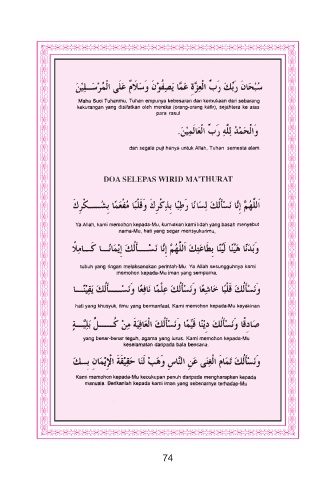 سُبْحَانَ رَبِّكَ رَبِّ الْعِزَّةِ عَمَّا يَصِفُوْنَ وَسَلَامٌ عَلَى الْمُرْسَلِيْنَ
Maha Suci Tuhanmu, Tuhan empunya kebesaran dan kemuliaan dari sebarang
kekurangan yang disifatkan oleh mereka (orang-orang kafir), sejahtera ke atas
para rasul
وَالْحَمْدُ لِلَّهِ رَبِّ الْعَالَمِيْنَ.
dan segala puji hanya untuk Allah, Tuhan semesta alam.
DOA SELEPAS WIRID MA'THURAT
اَللَّهُمَّ إِنَّا نَسْأَلُكَ لِسَانًا رَطْبًا بِذِكْرِكَ وَقَلْبًا مُفْعَمًا بِشُكْرِكَ
Ya Allah, kami memohon kepada-Mu, kurniakan kami lidah yang basah menyebut
nama-Mu, hati yang segar mensyukurimu,
وَبَدَنًا هَيِّنًا لَيِّنًا بِطَاعَتِكَ اَللَّهُمَّ إِنَّا نَسْأَلُكَ إِيْمَانًا كَامِلًا
tubuh yang ringan melaksanakan perintah-Mu. Ya Allah sesungguhnya kami
memohon kepada-Mu iman yang sempurna,
وَنَسْأَلُكَ قَلْبًا خَاشِعًا وَنَسْأَلُكَ عِلْمًا نَافِعًا وَنَسْأَلُكَ يَقِيْنًا
hati yang khusyuk, ilmu yang bermanfaat. Kami memohon kepada-Mu keyakinan
صَادِقًا وَنَسْأَلُكَ دِيْنًا قَيِّمًا وَنَسْأَلُكَ الْعَافِيَةَ مِنْ كُلِّ بَلِيَّةٍ
yang benar-benar teguh, agama yang lurus. Kami memohon kepada-Mu
keselamatan daripada bala bencana.
وَنَسْأَلُكَ تَمَامَ الْغِنَى عَنِ النَّاسِ وَهَبْ لَنَا حَقِيْقَةَ الْإِيْمَانِ بِكَ
Kami memohon kepada-Mu kecukupan penuh daripada mengharapkan kepada
manusia. Berikanlah kepada kami iman yang sebenarnya terhadap-Mu
74